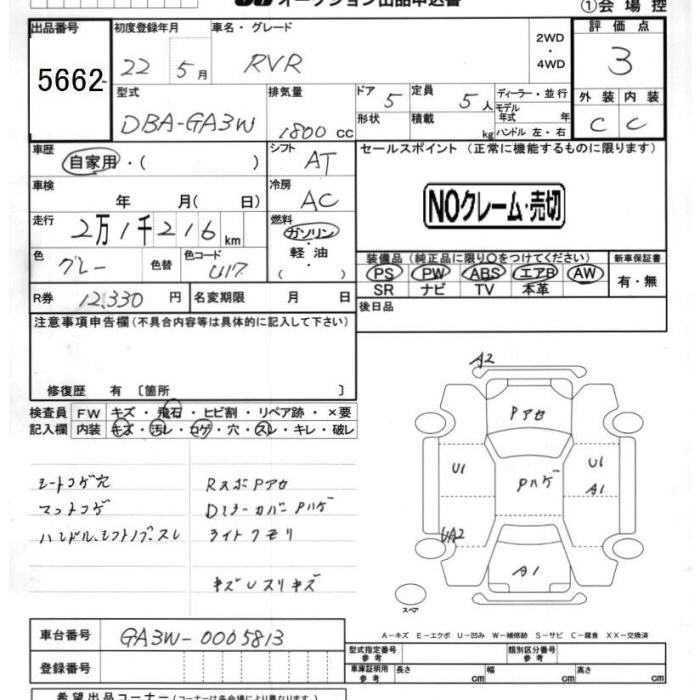 オークション出品申込書
①会場控
出品番号 初度登録年月 車名・グレード 評価点
5662 22 5月 RVR 2WD・4WD 3
型式 排気量 ドア 定員 ディーラー・並行 外装 内装
DBA-GA3W 1800 cc 5 5人 モデル年式 年 C C
形状 積載 kg ハンドル 左・右
車歴 シフト セールスポイント (正常に機能するものに限ります)
自家用・( ) AT
車検 冷房
年 月( 日) AC NOクレーム・売切
走行 燃料
2万1千216km ガソリン・軽油・( )
色 色替 色コード 装備品 (純正品に限り○をつけてください) 新車保証書
グレー U17 PS PW ABS エアB AW 有・無
SR ナビ TV 本革
R券 12,330円 名変期限 月 日 後日品
注意事項申告欄(不具合内容等は具体的に記入して下さい)
修復歴 有 〔箇所 〕
検査員 FW キズ・飛石・ヒビ割・リペア跡・×要
記入欄 内装 キズ・汚レ・コゲ・穴・スレ・キレ・破レ
シートコゲ穴 RスポPアセ
マットコゲ DミラーカバーPハゲ
ハンドル、シフトノブスレ ライトクモリ
キズUスリキズ
A2
Pアセ
U1 Pハゲ U1
A1
UA2
A1
スペア
A-キズ E-エクボ U-凹み W-補修跡 S-サビ C-腐食 XX-交換済
車台番号 GA3W-0005813
登録番号
型式指定番号 参考 類別区分番号 参考
車庫証明用 参考 長さ cm 幅 cm 高さ cm
希望出品コーナー(コーナーは各会場により異なります。)